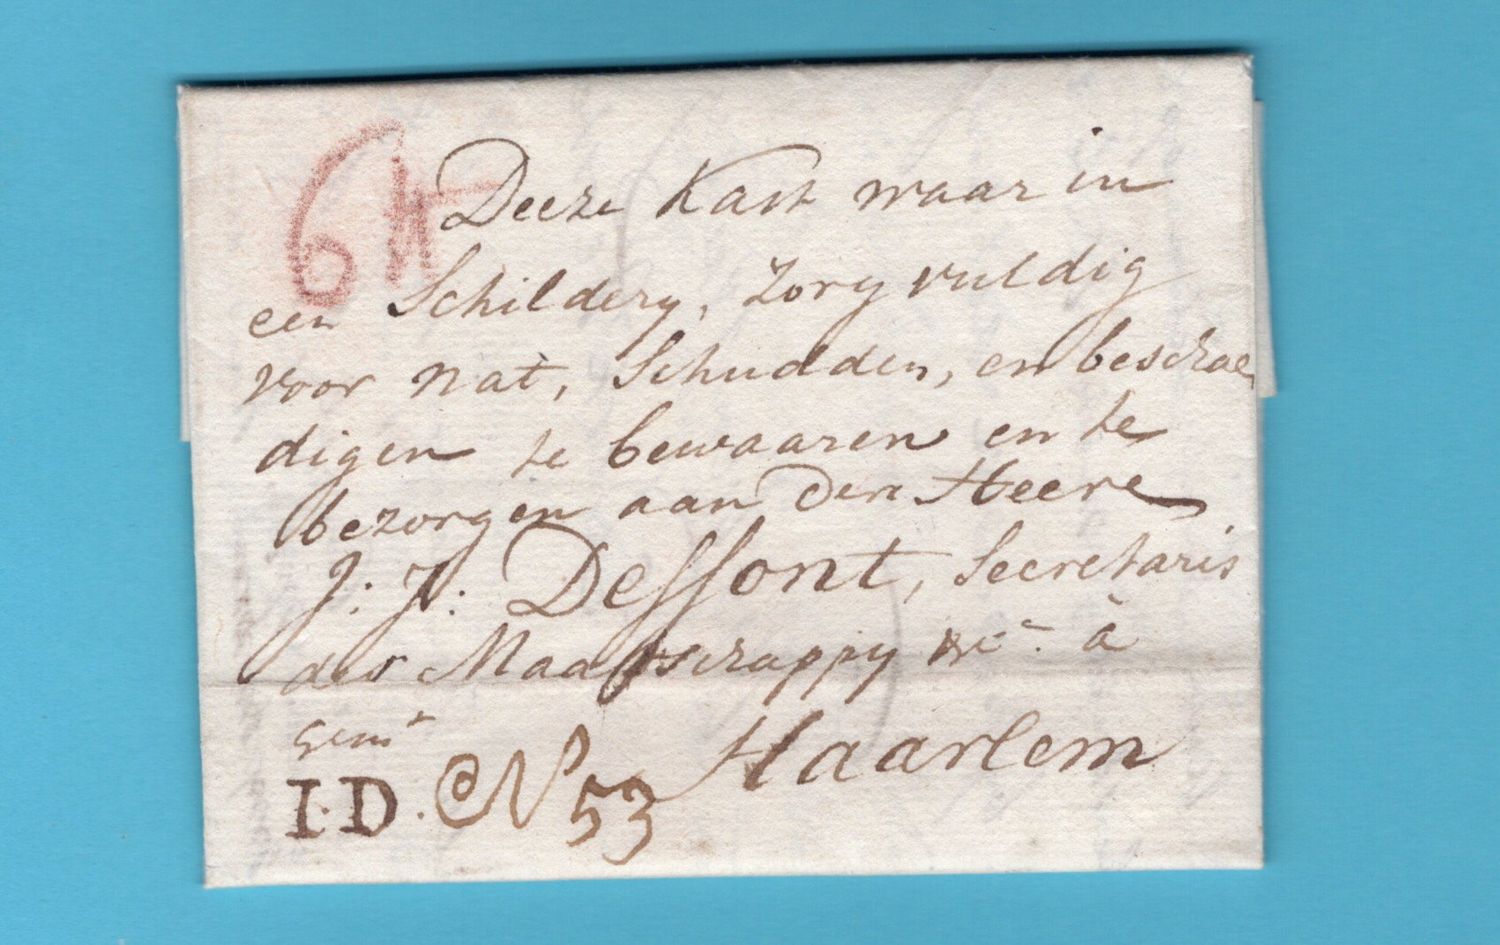 6 st Deeze Kast waar in
een Schildery, zorg vuldig
voor nat, Schudden, en beschae
digen te bewaaren en te
bezorgen aan den Heere
J: J: Dessont, Secretaris
der Maatschappy &c. à
Haarlem
gem
I·D. No 53